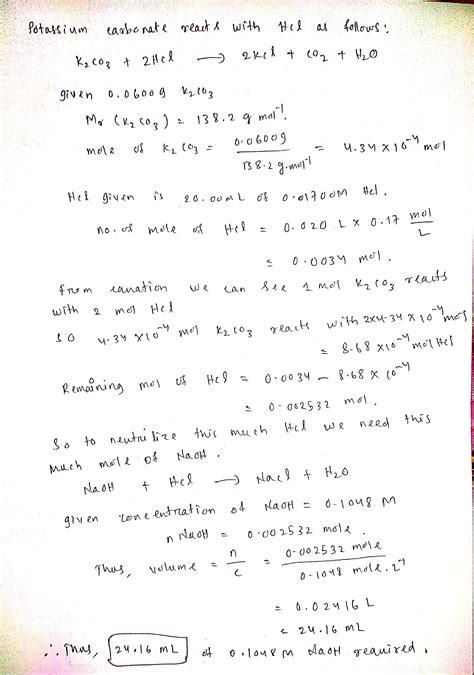 Potassium carbonate reacts with Hcl as follows:
K2CO3 + 2Hcl → 2Kcl + CO2 + H2O
given 0.0600g K2CO3
Mr (K2CO3) = 138.2 g mol-1.
mole of K2CO3 = 0.0600g / 138.2 g.mol-1 = 4.34 x 10-4 mol
Hcl given is 20.00mL of 0.01700M Hcl.
no. of mole of Hcl = 0.020 L x 0.17 mol/L
= 0.0034 mol.
from equation we can see 1 mol K2CO3 reacts
with 2 mol Hcl
so 4.34 x10-4 mol K2CO3 reacts with 2x4.34 x 10-4 mol
= 8.68 x10-4 mol Hcl
Remaining mol of Hcl = 0.0034 - 8.68 x 10-4
= 0.002532 mol.
So to neutralize this much Hcl we need this
much mole of NaOH.
NaOH + Hcl → Nacl + H2O
given concentration of NaOH = 0.1048 M
n NaOH = 0.002532 mole.
Thus, volume = n/c = 0.002532 mole / 0.1048 mole.L-1
= 0.02416 L
= 24.16 mL
∴ Thus, 24.16 mL of 0.1048 M NaOH required.